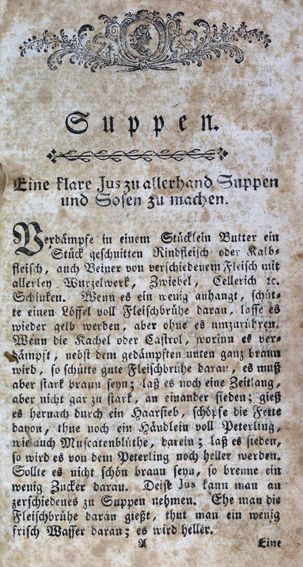 Suppen.
Eine klare Jus zu allerhand Suppen
und Sosen zu machen.
Verdämpfe in einem Stücklein Butter ein
Stück geschnitten Rindfleisch oder Kalb-
fleisch, auch Beiner von verschiedenem Fleisch mit
allerley Wurzelwerk, Zwiebel, Cellerich ꝛc.
Schinken. Wenn es ein wenig anhangt, schüt-
te einen Löffel voll Fleischbrühe daran, lasse es
wieder gelb werden, aber ohne es umzurühren.
Wenn die Kachel oder Castrol, worinn es ver-
dämpft, nebst dem gedämpften unten ganz braun
wird, so schütte gute Fleischbrühe daran, es muß
aber stark braun seyn; laß es noch eine Zeitlang,
aber nicht gar zu stark, an einander sieden; gieß
es hernach durch ein Haarsieb, schöpfe die Fette
davon, thue noch ein Händlein voll Peterling,
wie auch Muscatenblüthe, darein; laß es sieden,
so wird es von dem Peterling noch heller werden.
Sollte es nicht schön braun seyn, so brenne ein
wenig Zucker daran. Deise Jus kann man an
zerschiedenes zu Suppen nehmen. Ehe man die
Fleischbrühe daran gießt, thut man ein wenig
frisch Wasser daran; es wird heller.
A Eine